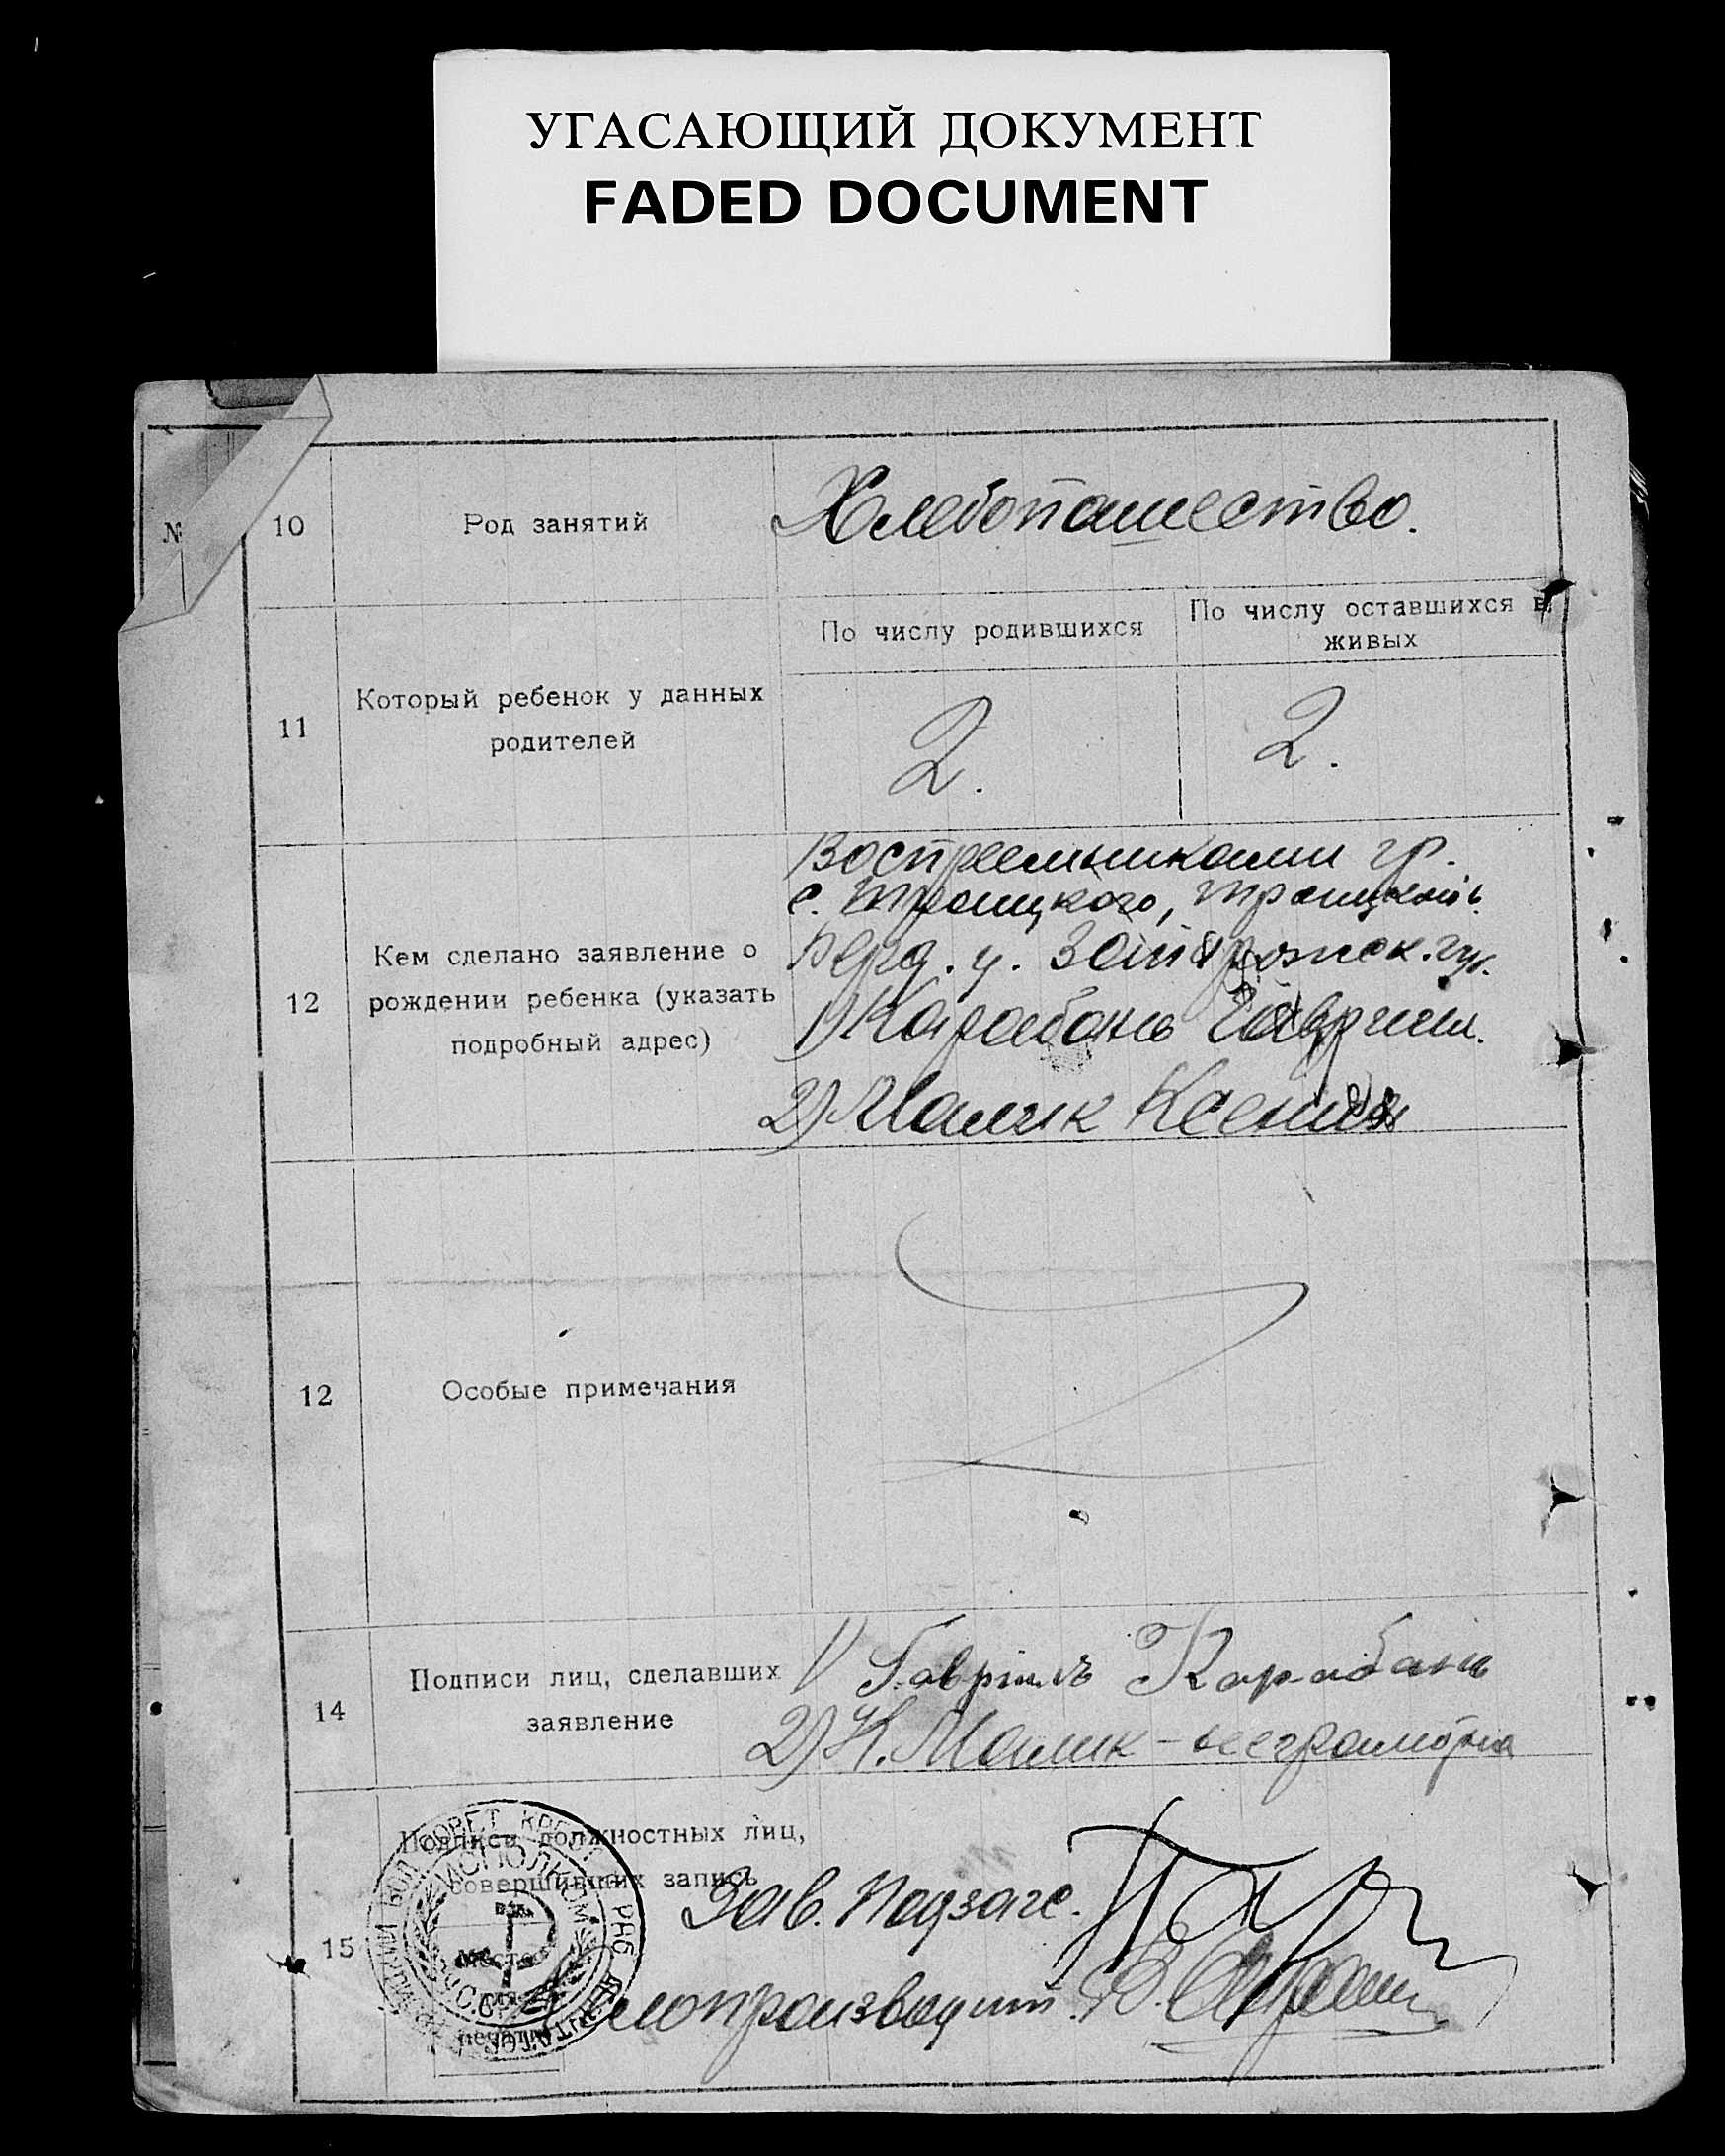 УГАСАЮЩИЙ ДОКУМЕНТ
FADED DOCUMENT
№
10
Род занятий
Хлебопашество.
11
Который ребенок у данных
родителей
По числу родившихся
По числу оставшихся в
живых
2.
2.
12
Кем сделано заявление о
рождении ребенка (указать
подробный адрес)
Воспреемниками гр.
с. Троицкого, Троицкой в.
Берд. у. Запорожск. губ.
1) Карабань Гавриил.
2) Малик Ксения
12
Особые примечания
14
Подписи лиц, сделавших
заявление
1) Гавріилъ Карабань
2) К. Малик - неграмотна
15
Подписи должностных лиц,
совершивших запись
Место
печати
ИСПОЛКОМ
Зав. Подзагс.
Делопроизводит.